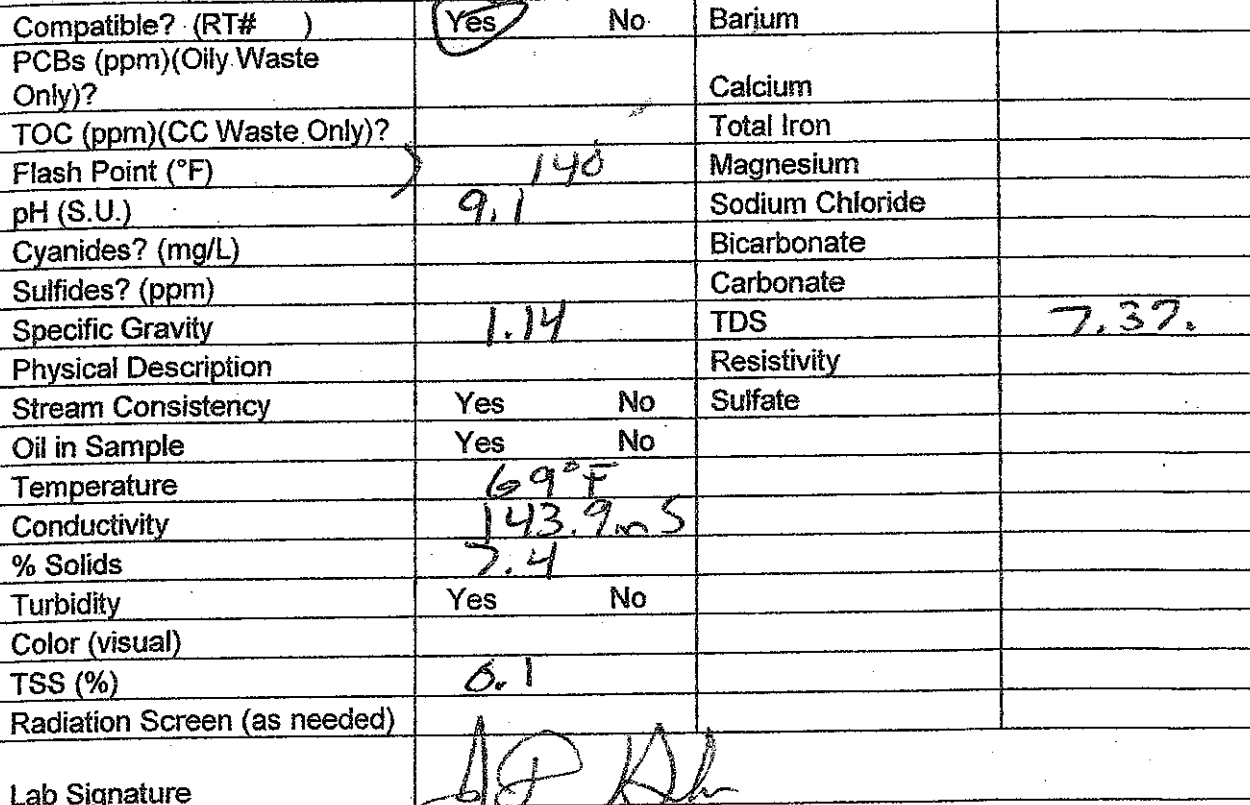 Compatible? (RT# ) Yes No Barium
PCBs (ppm)(Oily Waste
Only)? Calcium
TOC (ppm)(CC Waste Only)? Total Iron
Flash Point (°F) > 140 Magnesium
pH (S.U.) 9.1 Sodium Chloride
Cyanides? (mg/L) Bicarbonate
Sulfides? (ppm) Carbonate
Specific Gravity 1.14 TDS 7.3%
Physical Description Resistivity
Stream Consistency Yes No Sulfate
Oil in Sample Yes No
Temperature 69°F
Conductivity 143.9mS
% Solids 7.4
Turbidity Yes No
Color (visual)
TSS (%) 0.1
Radiation Screen (as needed)
Lab Signature